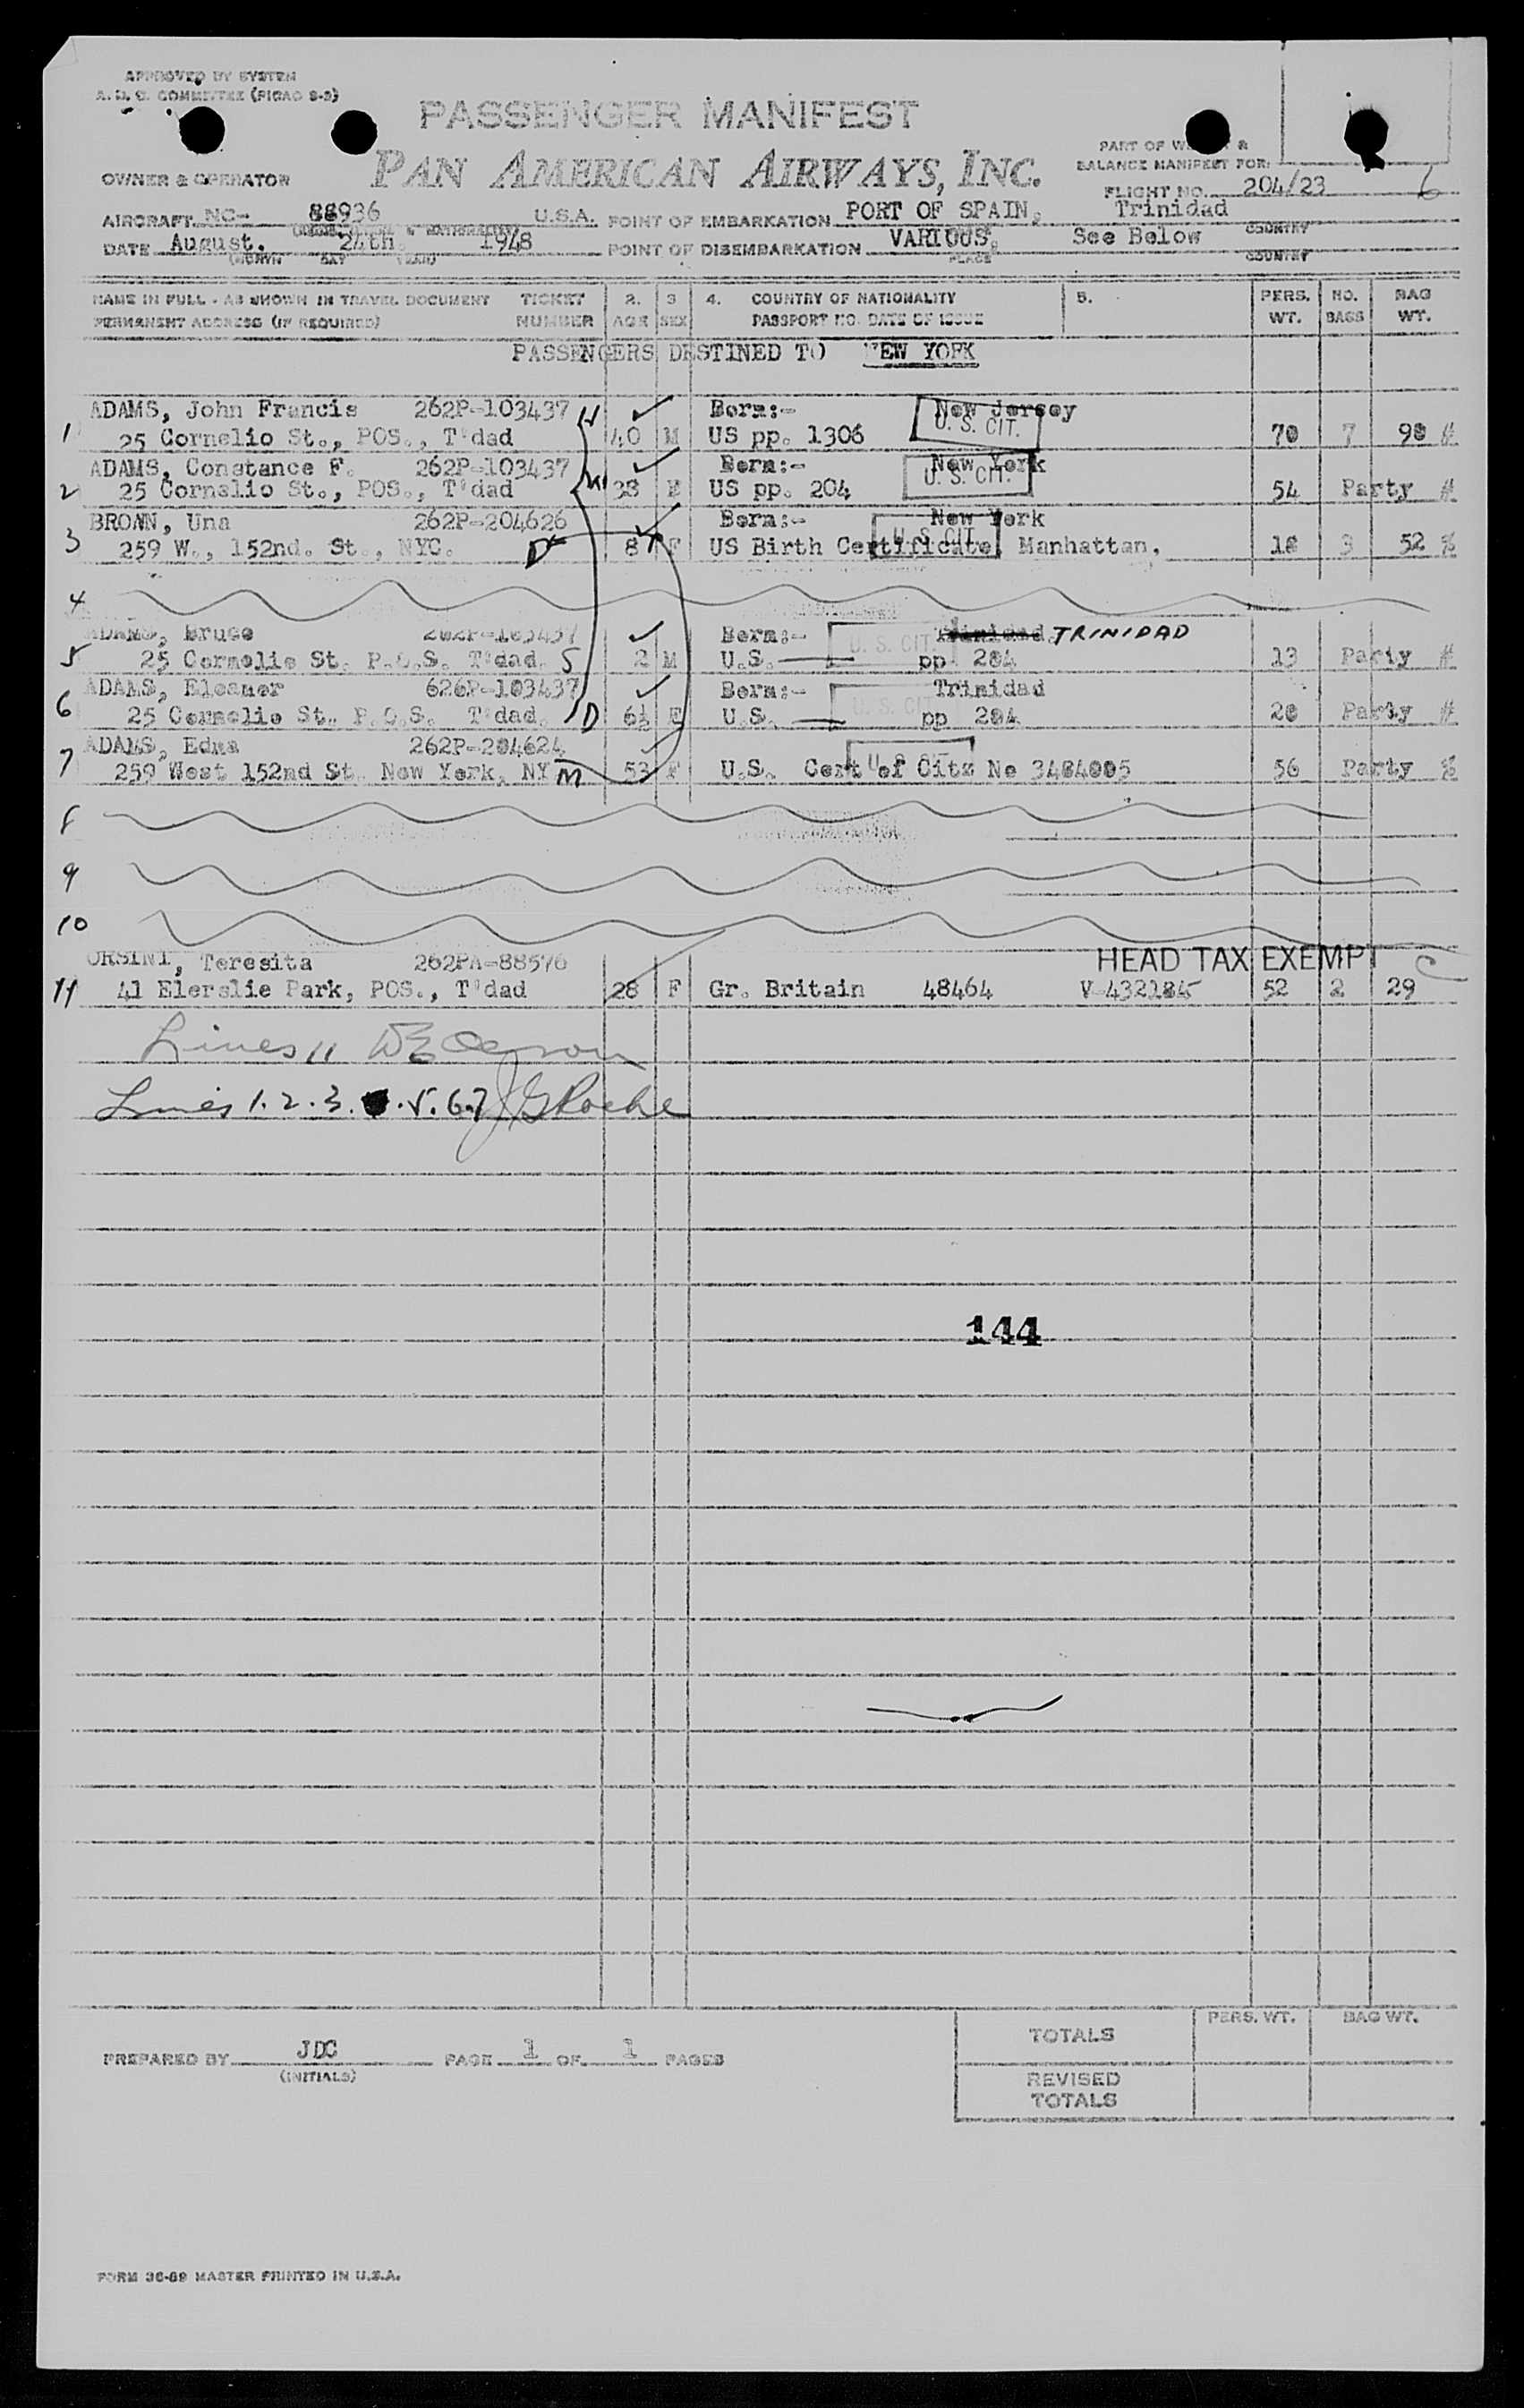 APPROVED BY SYSTEM
A. D. C. COMMITTEE (PICAO S-3)
PASSENGER MANIFEST
PAN AMERICAN AIRWAYS, INC.
PART OF W &
BALANCE MANIFEST FOR:
OWNER & OPERATOR
FLIGHT NO. 204/23 6
AIRCRAFT NC- 88936 U.S.A. POINT OF EMBARKATION PORT OF SPAIN, Trinidad
COUNTRY
DATE August, 24th. 1948 POINT OF DISEMBARKATION VARIOUS, See Below
DAY YEAR PLACE COUNTRY
NAME IN FULL - AS SHOWN IN TRAVEL DOCUMENT TICKET 2. 3 4. COUNTRY OF NATIONALITY 5. PERS. NO. BAG
PERMANENT ADDRESS (IF REQUIRED) NUMBER AGE SEX PASSPORT NO. DATE OF ISSUE WT. BAGS WT.
PASSENGERS DESTINED TO NEW YORK
ADAMS, John Francis 262P-103437 H Born:- New Jersey
1 25 Cornelio St., POS., T'dad 40 M US pp. 1306 U. S. CIT. 70 7 90 #
ADAMS, Constance F. 262P-103437 Born:- New York
2 25 Cornelio St., POS., T'dad W 38 F US pp. 204 U. S. CIT. 54 Party #
BROWN, Una 262P-204626 Born:- New York
3 259 W., 152nd. St., NYC. D 8 F US Birth Certificate, Manhattan, U. S. CIT. 18 3 52 %
4
ADAMS, Bruce 262P-103437 Born:- Trinidad. TRINIDAD
5 25 Cornelio St. P.O.S. T'dad. S 2 M U.S. pp 204 U. S. CIT. 13 Party #
ADAMS, Eleanor 626P-103437 Born:- Trinidad
6 25 Cornelio St. P.O.S. T'dad. D 6½ F U.S. pp 204 U. S. CIT. 20 Party #
ADAMS, Edna 262P-204624
7 259 West 152nd St. New York, NY M 53 F U.S. Cert of Citz No 3484005 U. S. CIT. 56 Party %
8
9
10
ORSINI, Teresita 262PA-88576 HEAD TAX EXEMPT C
11 41 Elerslie Park, POS., T'dad 28 F Gr. Britain 48464 V-432185 52 2 29
Lines 11
Lines 1. 2. 3. 5. 6.7 J G Roche
144
PREPARED BY JDC PAGE 1 OF 1 PAGES
(INITIALS)
PERS. WT. BAG WT.
TOTALS
REVISED
TOTALS
FORM 36-69 MASTER PRINTED IN U.S.A.